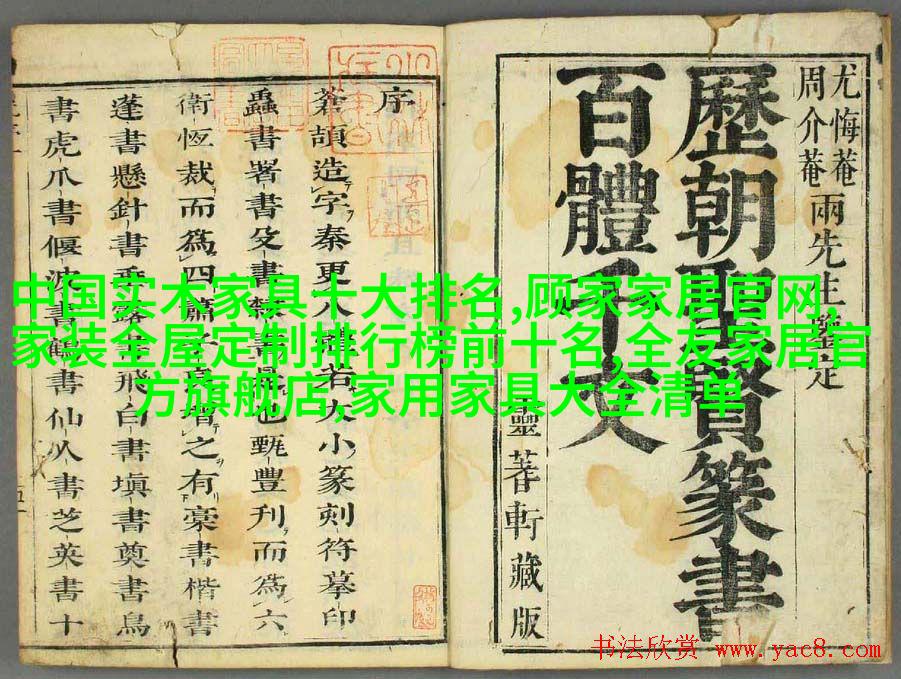 中国实木家具十大排名,顾家家居官网,
家装全屋定制排行榜前十名,全友家居官
方旗舰店,家用家具大全清单
尤悔菴
周介菴
兩先生鑒定
歷朝聖賢篆書
百體千文
靈蓍軒藏版
序
蒼頡造字秦更八體若大小篆刻符摹印
蟲書署書殳書隸書是也甄豐刋而爲六
衛恆裁而爲四蕭子良者之有藁書楷書
蓬書懸針書垂露書飛白書塡書奠書鳥
書虎爪書偃波書鶴書仙人書芝英書十
书法欣赏 www.yac8.com